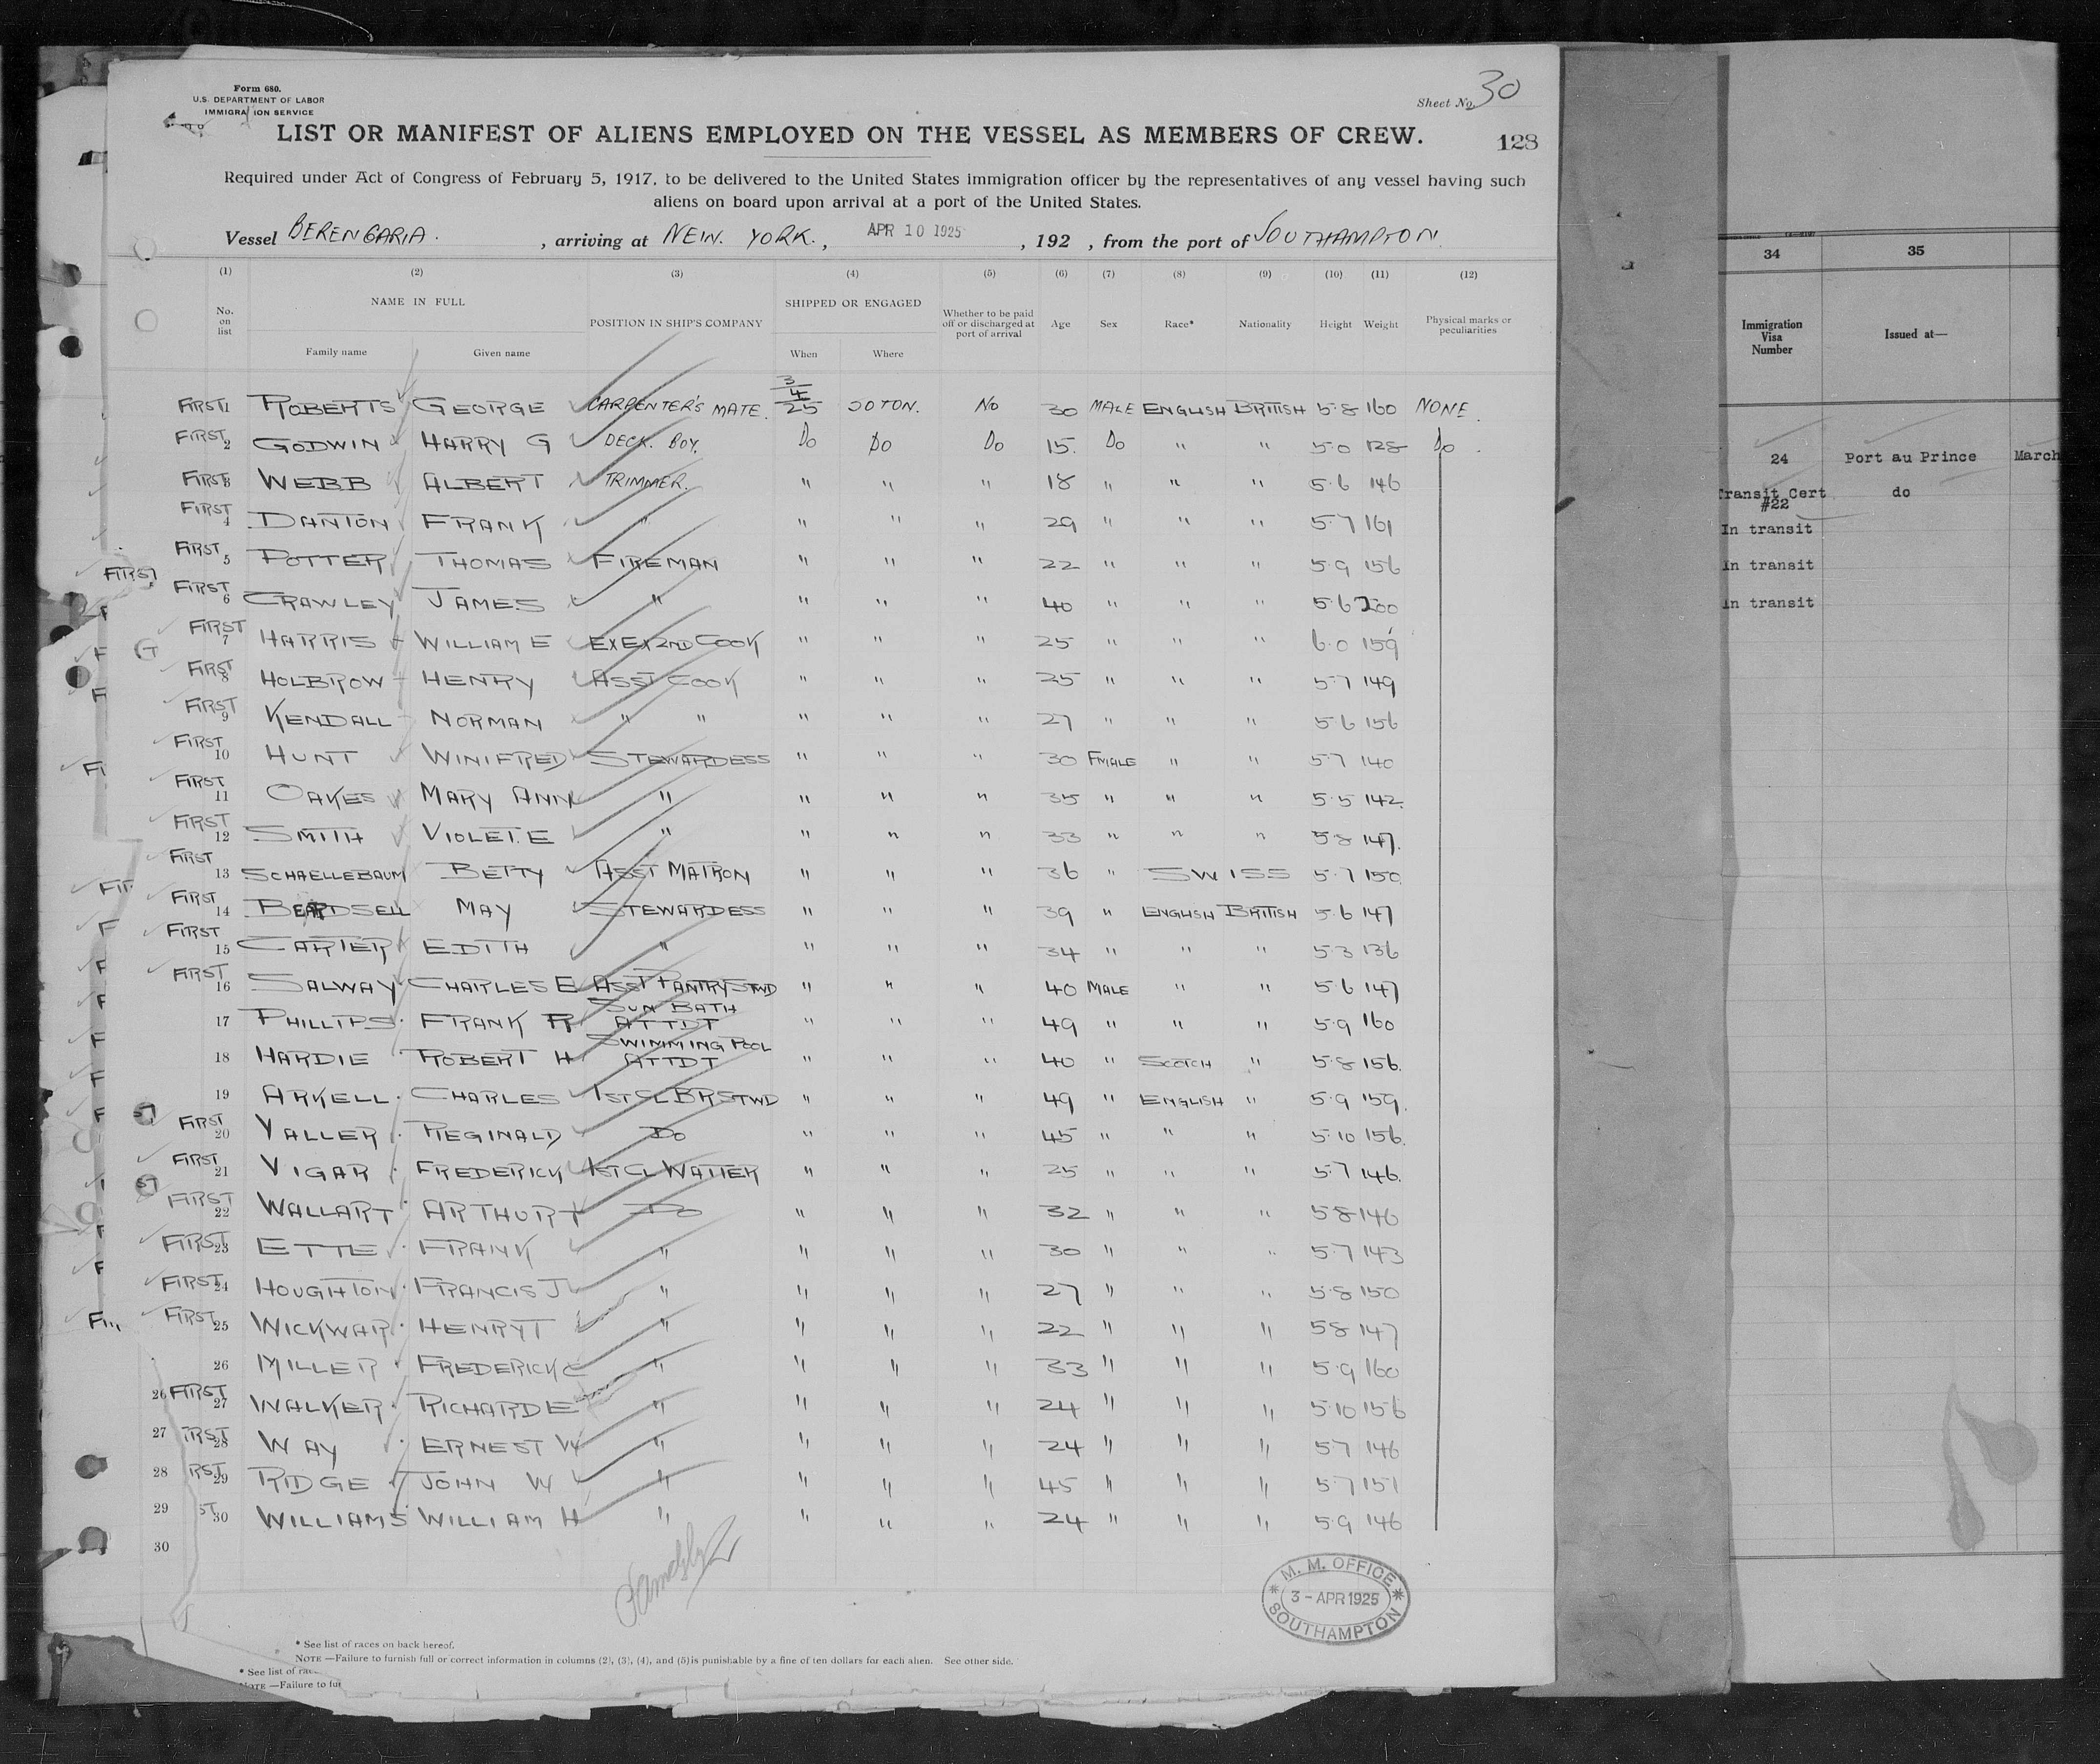 Form 680.
U.S. DEPARTMENT OF LABOR
IMMIGRATION SERVICE
Sheet No. 30
LIST OR MANIFEST OF ALIENS EMPLOYED ON THE VESSEL AS MEMBERS OF CREW.
128
Required under Act of Congress of February 5, 1917, to be delivered to the United States immigration officer by the representatives of any vessel having such
aliens on board upon arrival at a port of the United States.
Vessel BERENGARIA. , arriving at NEW. YORK. , APR 10 1925 , 192 , from the port of SOUTHAMPTON.
(1) (2) (3) (4) (5) (6) (7) (8) (9) (10) (11) (12)
No. on list NAME IN FULL Family name Given name POSITION IN SHIP'S COMPANY SHIPPED OR ENGAGED When Where Whether to be paid off or discharged at port of arrival Age Sex Race* Nationality Height Weight Physical marks or peculiarities
FIRST 1 ROBERTS GEORGE CARPENTER'S MATE. 3/4/25 SOTON. No 30 MALE ENGLISH BRITISH 5·8 160 NONE.
FIRST 2 GODWIN HARRY G DECK. BOY. Do Do Do 15. Do " " 5·0 128 Do.
FIRST 3 WEBB ALBERT TRIMMER. " " " 18 " " " 5·6 146
FIRST 4 DANTON FRANK " " " " 29 " " " 5·7 161
FIRST 5 POTTER THOMAS FIREMAN " " " 22 " " " 5·9 156
FIRST 6 CRAWLEY JAMES " " " " 40 " " " 5·6 200
FIRST 7 HARRIS WILLIAM E EX EX 2ND COOK " " " 25 " " " 6·0 159
FIRST 8 HOLBROW HENRY ASST COOK " " " 25 " " " 5·7 149
FIRST 9 KENDALL NORMAN " " " " " 27 " " " 5·6 156
FIRST 10 HUNT WINIFRED STEWARDESS " " " 30 FMALE " " 5·7 140
FIRST 11 OAKES MARY ANN " " " " 35 " " " 5·5 142.
FIRST 12 SMITH VIOLET.E " " " " 33 " " " 5·8 147.
FIRST 13 SCHAELLEBAUM BETTY ASST MATRON " " " 36 " SWISS 5·7 150
FIRST 14 BEARDSELL MAY STEWARDESS " " " 39 " ENGLISH BRITISH 5·6 147
FIRST 15 CARTER EDITH " " " " 34 " " " 5·3 136
FIRST 16 SALWAY CHARLES E ASST PANTRY STWD " " " 40 MALE " " 5·6 147
17 PHILLIPS FRANK R SUN BATH ATTDT " " " 49 " " " 5·9 160
18 HARDIE ROBERT H SWIMMING POOL ATTDT " " " 40 " SCOTCH " 5·8 156.
19 ARKELL CHARLES 1ST CL BR STWD " " " 49 " ENGLISH " 5·9 159.
FIRST 20 VALLER REGINALD Do " " " 45 " " " 5·10 156.
FIRST 21 VIGAR FREDERICK 1ST CL WAITER " " " 25 " " " 5·7 146.
FIRST 22 WALLART ARTHUR T Do " " " 32 " " " 5·8 146
FIRST 23 ETTE FRANK " " " " 30 " " " 5·7 143
FIRST 24 HOUGHTON FRANCIS J " " " " 27 " " " 5·8 150
FIRST 25 WICKWAR HENRY T " " " " 22 " " " 5·8 147
26 MILLER FREDERICK C " " " " 33 " " " 5·9 160
26 FIRST 27 WALKER RICHARD E " " " " 24 " " " 5·10 156
27 RST 28 WAY ERNEST W " " " " 24 " " " 5·7 146
28 RST 29 RIDGE JOHN W " " " " 45 " " " 5·7 151
29 ST 30 WILLIAMS WILLIAM H " " " " 24 " " " 5·9 146
30
M. M. OFFICE
3 - APR 1925
SOUTHAMPTON
* See list of races on back hereof.
NOTE —Failure to furnish full or correct information in columns (2), (3), (4), and (5) is punishable by a fine of ten dollars for each alien. See other side.
* See list of rac
NOTE —Failure to fur
34 35
Immigration Visa Number Issued at—
24 Port au Prince March
Transit Cert #22 do
In transit
In transit
In transit